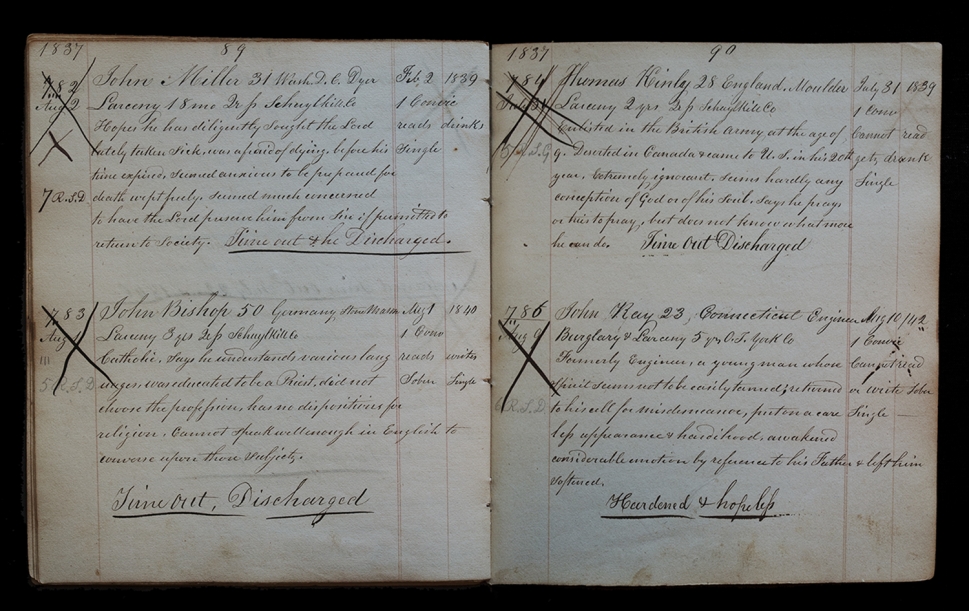 1837 89
782 John Miller 31 Wash. D.C. Dyer Feb 2 1839
Aug 2 Larceny 18 mo Qr Ss Schuylkill Co 1 Convic
Hopes he has diligently sought the Lord reads drinks
lately taken Sick, was afraid of dying, before his Single
time expired, seemed anxious to be prepared for
7 R.S.D death wept freely, seemed much concerned
to have the Lord preserve him from Sin if permitted to
return to Society. Time out & he Discharged.
783 John Bishop 50 Germany, Stone Mason Aug 1 1840
Aug 1 Larceny 3 yrs Qr Ss Schuylkill Co 1 Conv
Catholic. Says he understands various lang reads writes
5 R.S.D uages, was educated to be a Priest, did not Sober Single
choose the profession, has no dispositions for
religion. Cannot speak well enough in English to
converse upon those Subjects.
Time out, Discharged
1837 90
784 Thomas Kinly 28 England, Moulder July 31 1839
July 31 Larceny 2 yrs Qr Ss Schuylkill Co 1 Conv
Enlisted in the British Army at the age of Cannot read
9. Deserted in Canada & came to U.S. in his 20th gets drunk
year. Extremely ignorant. Seems hardly any Single
conception of God or of his Soul. Says he prays
or tries to pray, but does not know what more
he can do. Time out Discharged
786 John Kay 23, Connecticut Engineer Aug 10 1842
Aug 9 Burglary & Larceny 5 yrs O.T. York Co 1 Convic
Formerly Engineer, a young man whose Cannot read
spirit seems not to be easily tamed; returned or write Sober
R.S.D to his cell for misdemeanor, put on a care Single
less appearance & hardihood, awakened
considerable emotion by reference to his Father & left him
softened.
Hardened & hopeless